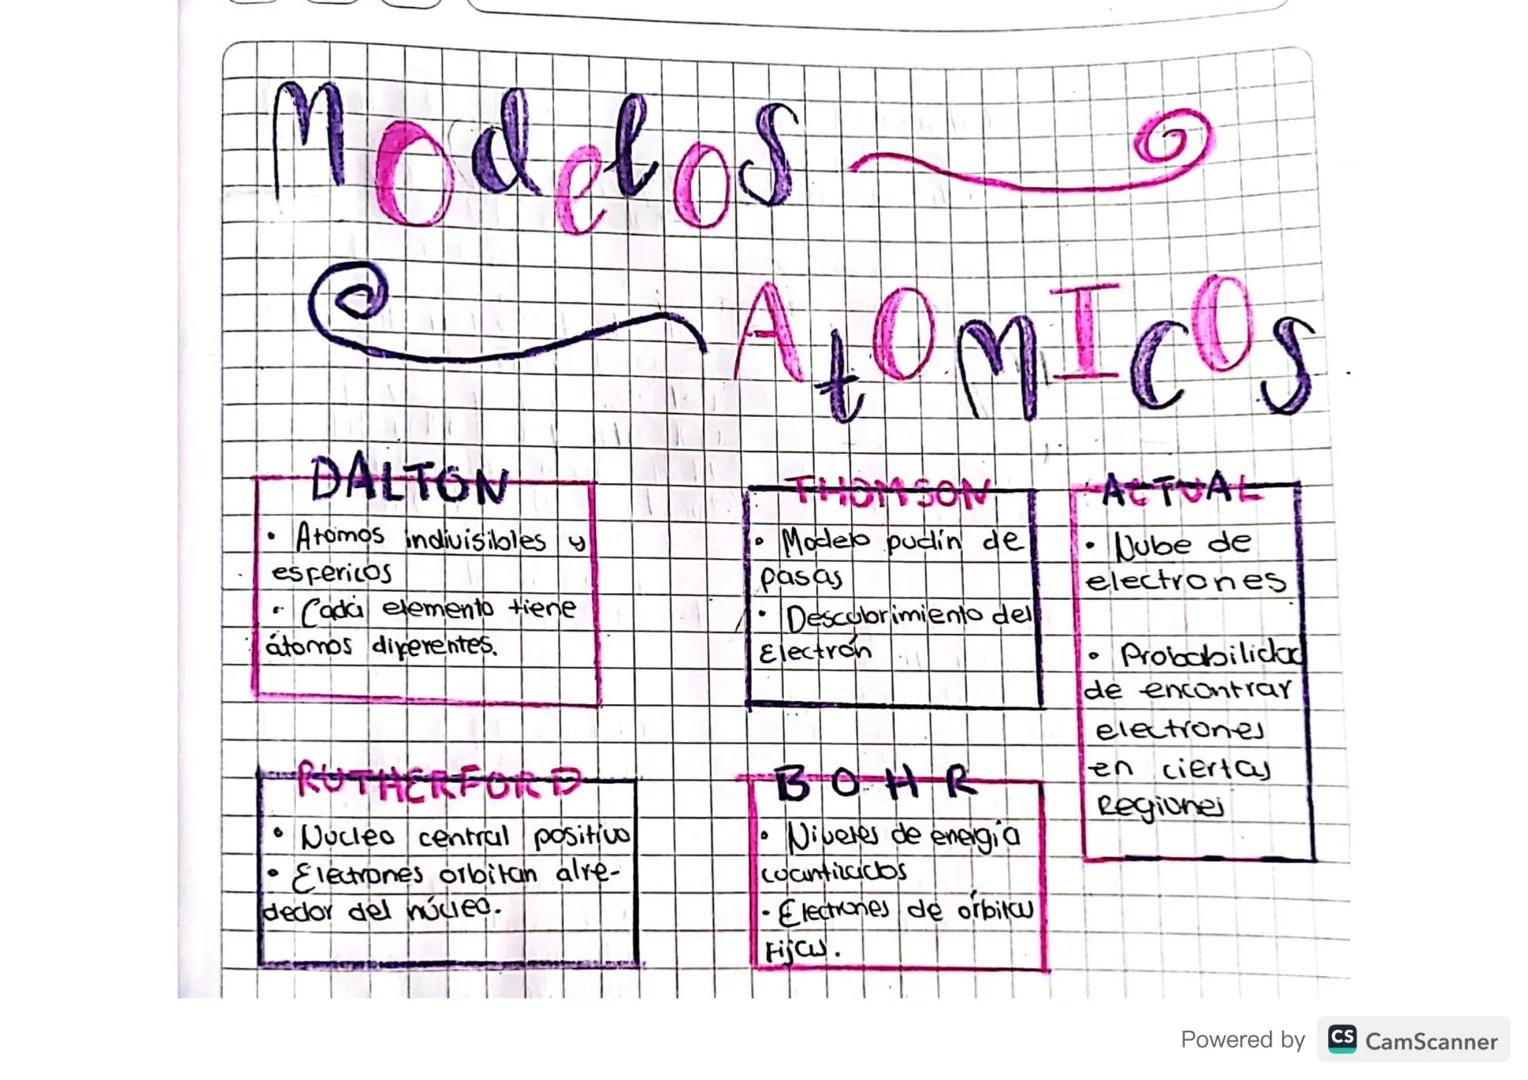 Modelos
AtOMICOS
DALTON
• Atomos indivisibles y
esfericos
• Cada elemento tiene
átomos diferentes.
THOMSON
• Modelo pudín de
pasas
• Descubrimiento del
Electrón
ACTUAL
• Nube de
electrones
• Probabilidad
de encontrar
electrones
en ciertas
Regiones
RUTHERFORD
• Nucleo central positivo
• Electrones orbitan alre-
dedor del núcleo.
BOHR
• Niveles de energía
cuantizados
• Electrones de órbitas
Fijas.
Powered by CS CamScanner